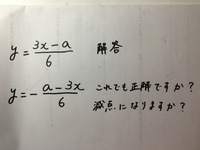 y = (3x − a)/6 解答
y = −(a − 3x)/6 これでも正解ですか?
減点になりますか?